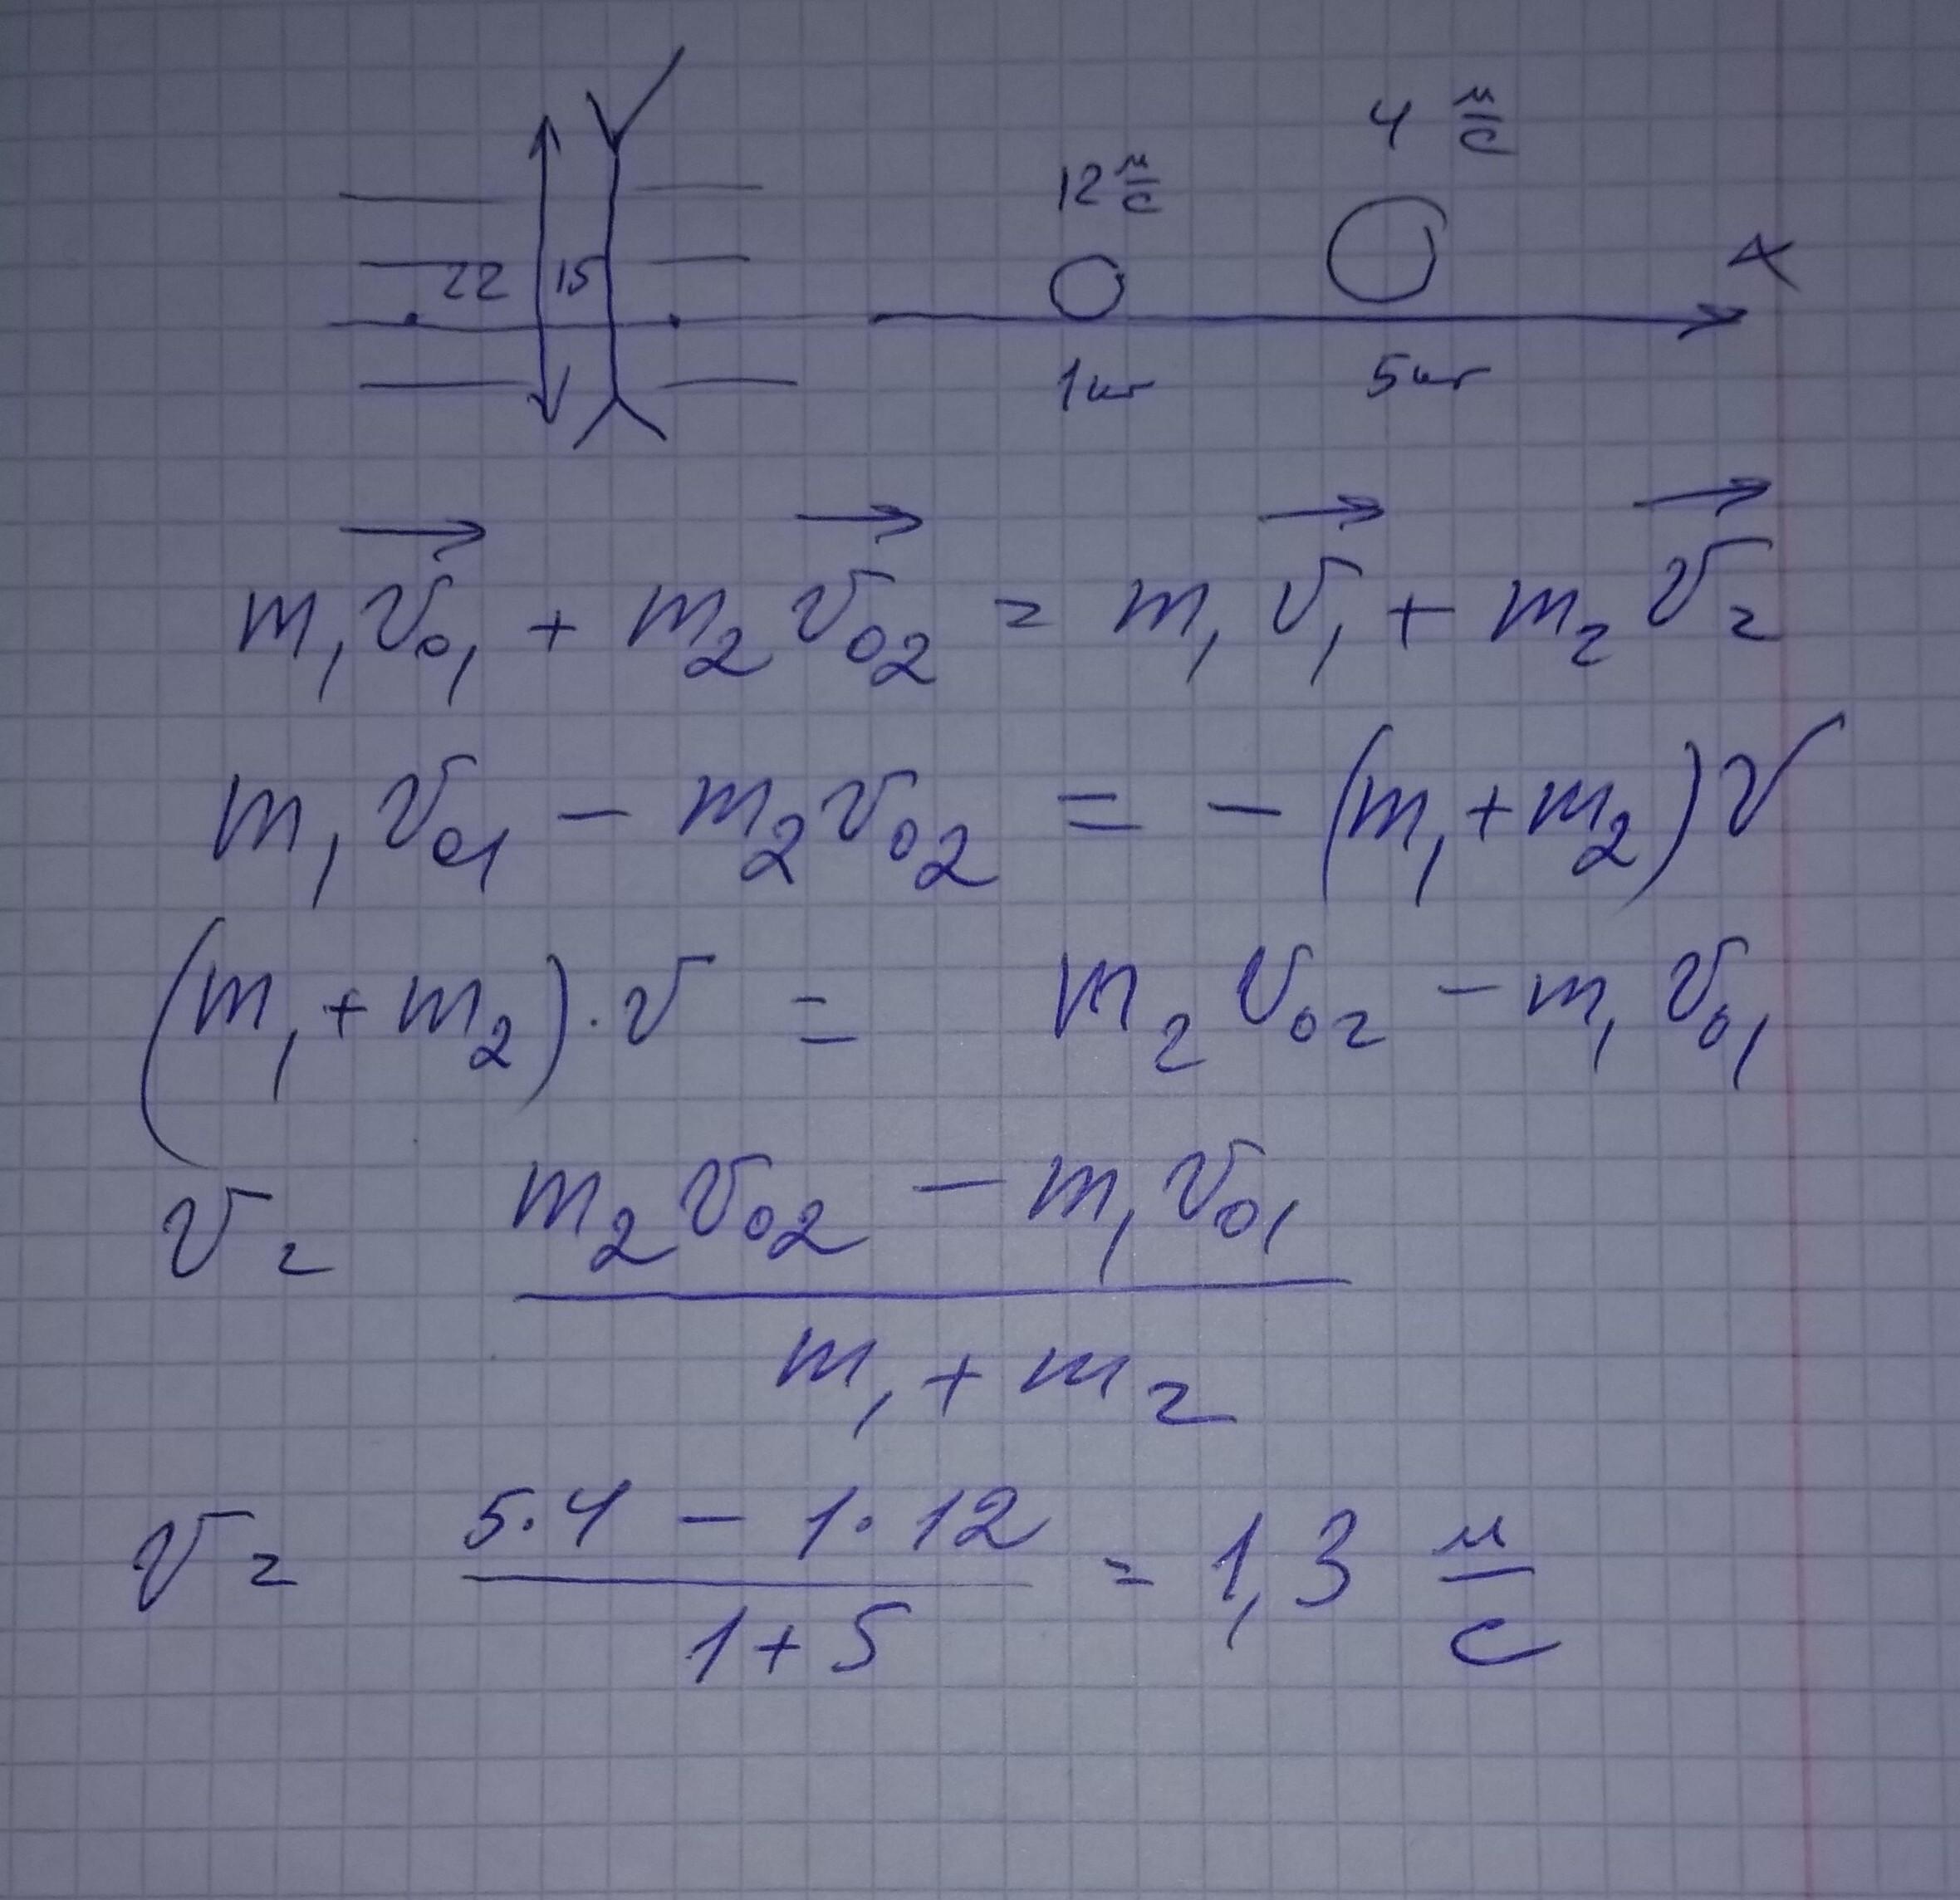 22 15
12 м/с 4 м/с
X
1кг 5кг
m₁v₀₁ + m₂v₀₂ = m₁v₁ + m₂v₂
m₁v₀₁ − m₂v₀₂ = −(m₁+m₂)v
(m₁+m₂)·v = m₂v₀₂ − m₁v₀₁
v = (m₂v₀₂ − m₁v₀₁) / (m₁+m₂)
v = (5·4 − 1·12) / (1+5) = 1,3 м/с